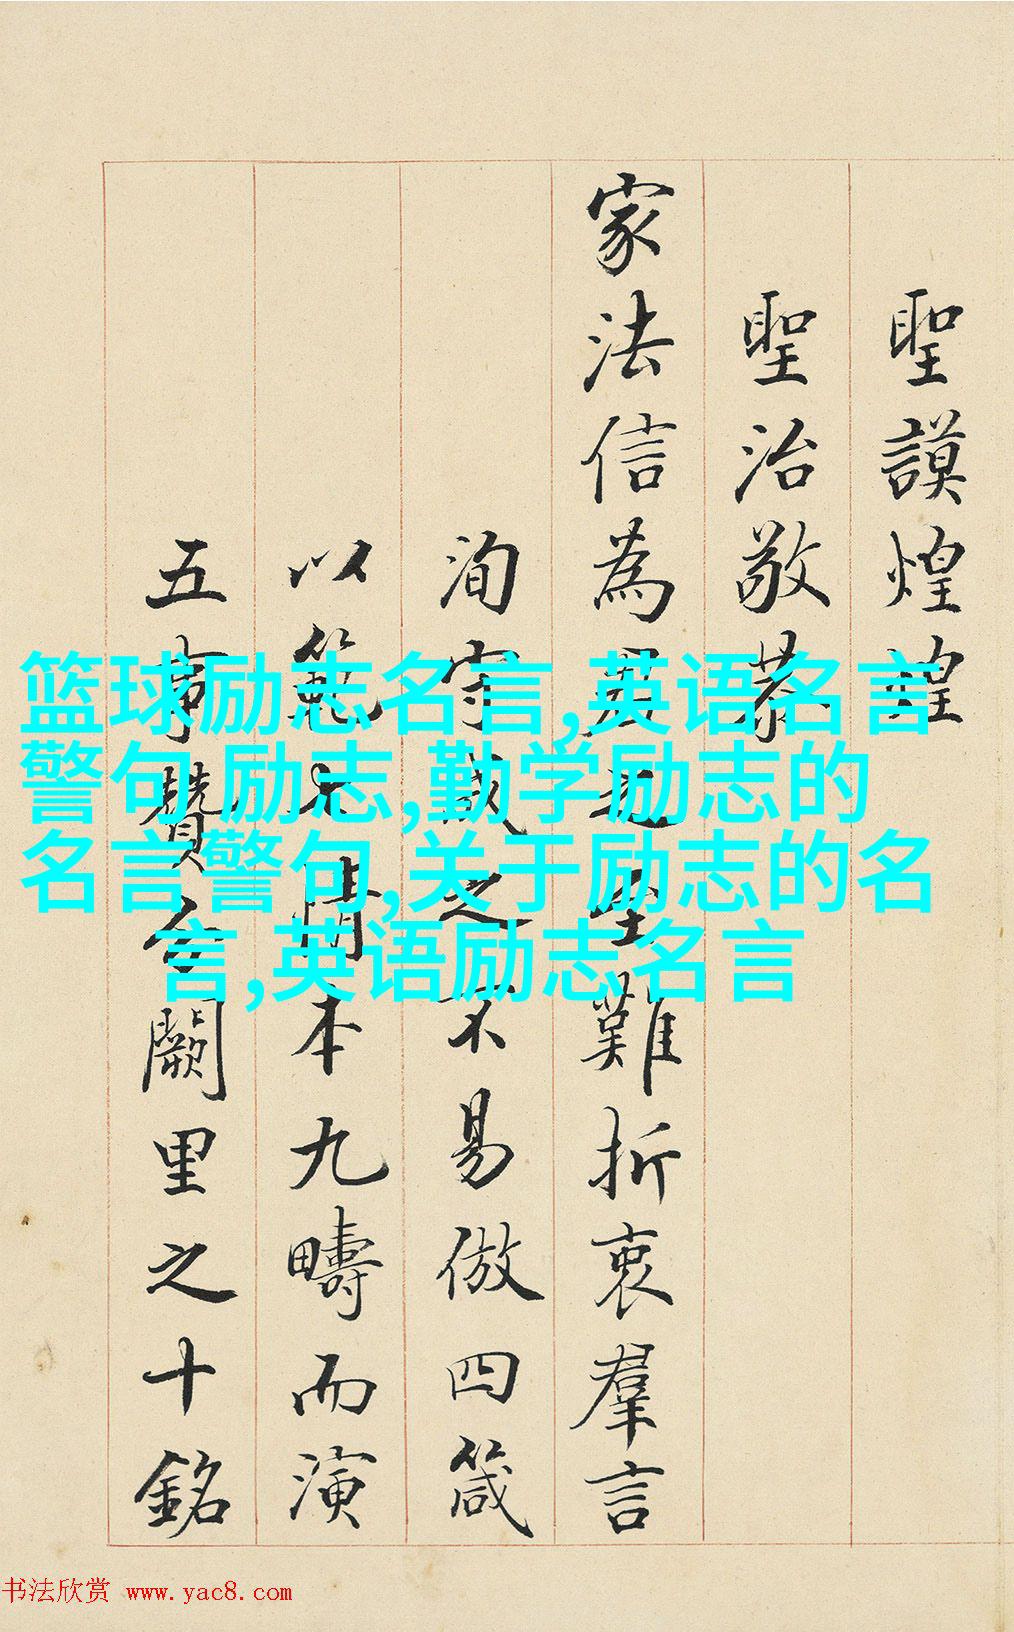 聖謨煌煌
聖治敬恭
家法信為君之至難折衷羣言
洵守成之不易倣四箴
以範七情本九疇而演
五事贊闕里之十銘
篮球励志名言,英语名言
警句 励志,勤学励志的
名言警句,关于励志的名
言,英语励志名言
书法欣赏 www.yac8.com